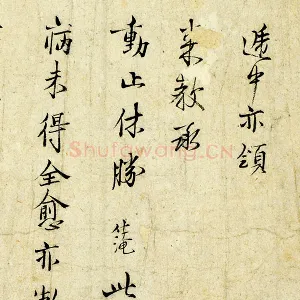 遞中亦領
来教承
動止休勝 此
病未得全愈亦
Shufawang.CN